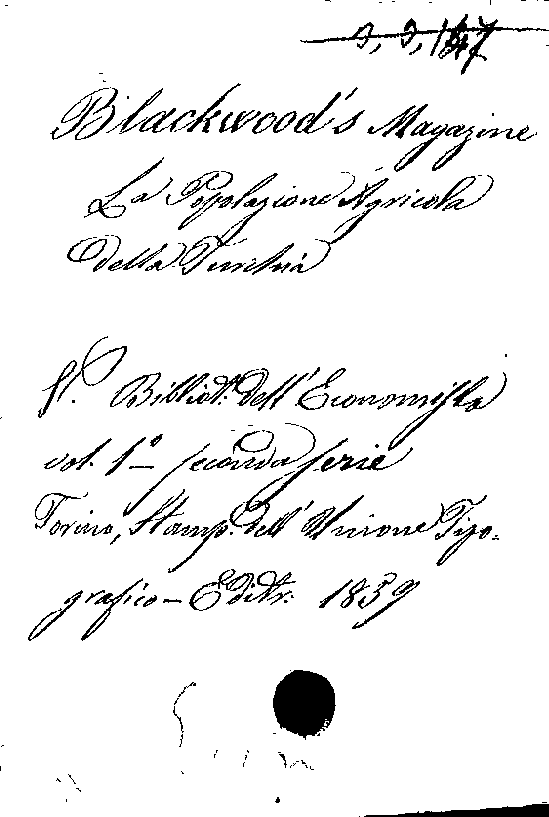 3, 3, 147
Blackwood's Magazine
La Popolazione Agricola
della Turchia
St. Bibliot. dell' Economista
vol. 1º - seconda serie
Torino, Stamp. dell' Unione Tipo-
grafico - Editr. 1859